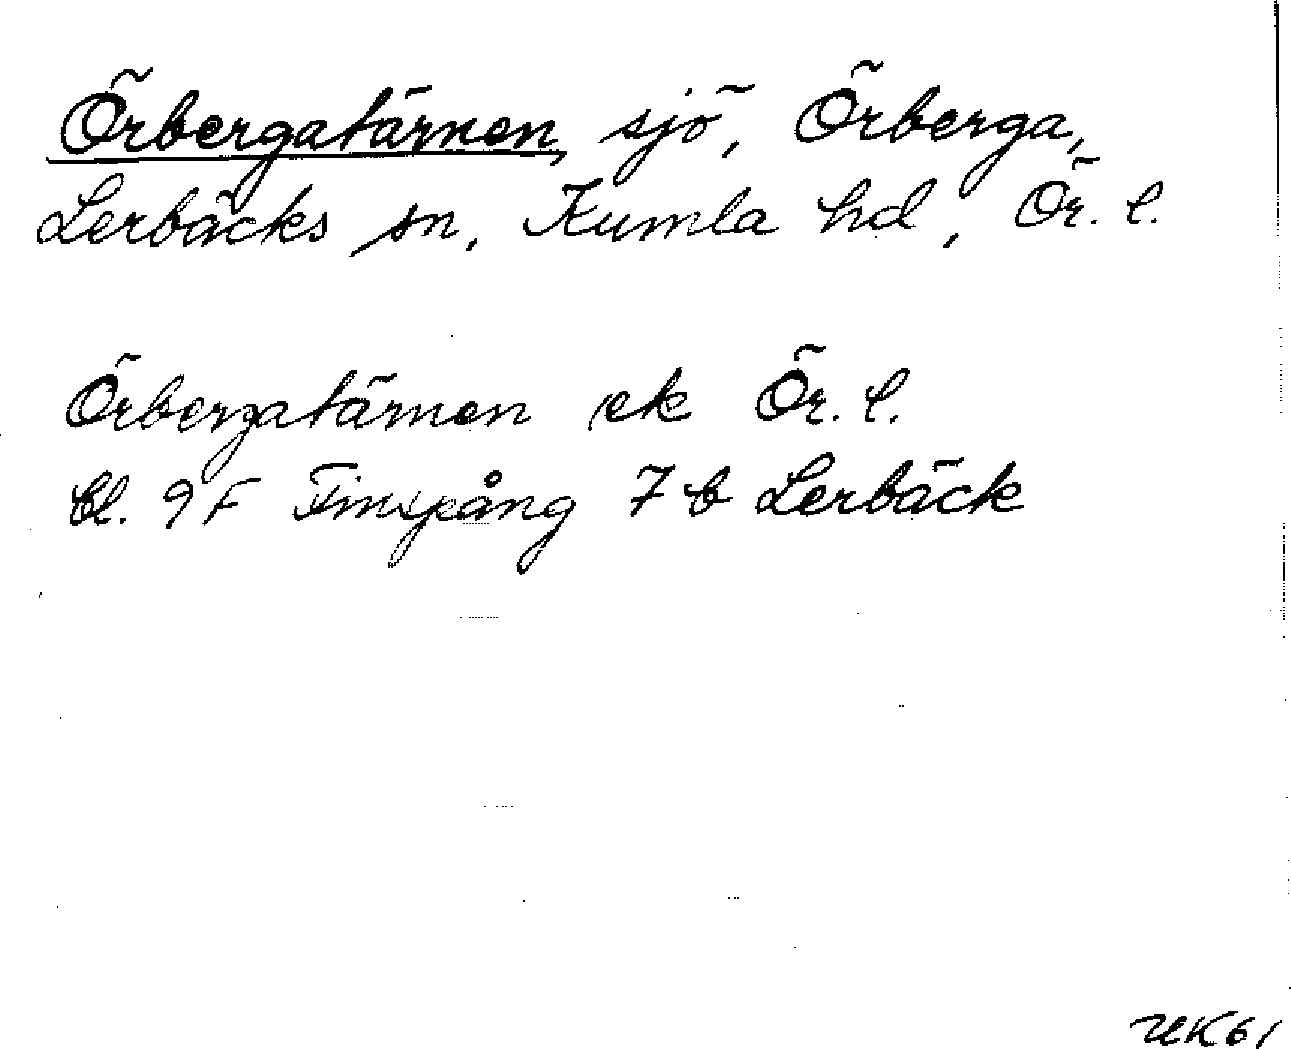 Örbergatärnen, sjö, Örberga,
Lerbäcks sn, Kumla hd, Ör. l.
Örbergatärnen ek Ör. l.
bl. 9F Finspång 7 b Lerbäck
UK61